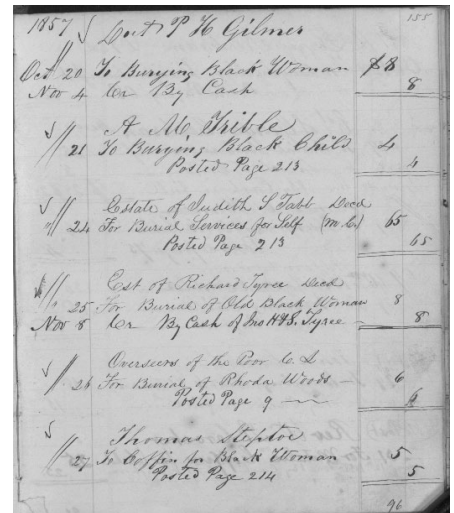 155
1857 Doct P H Gilmer
Oct 20 To Burying Black Woman $8
Nov 4 Cr By Cash 8
A M Trible
" 21 To Burying Black Child 4
Posted Page 213 4
Estate of Judith S Tabb Decd
" 24 For Burial Services for Self (M.C.) 65
Posted Page 213 65
Est of Richard Tyree Decd
" 25 For Burial of Old Black Woman 8
Nov 8 Cr By Cash of Jno H & S. Tyree 8
Overseers of the Poor C. L
" 26 For Burial of Rhoda Woods 6
Posted Page 9 6
Thomas Steptoe
" 27 To Coffin for Black Woman 5
Posted Page 214 5
96